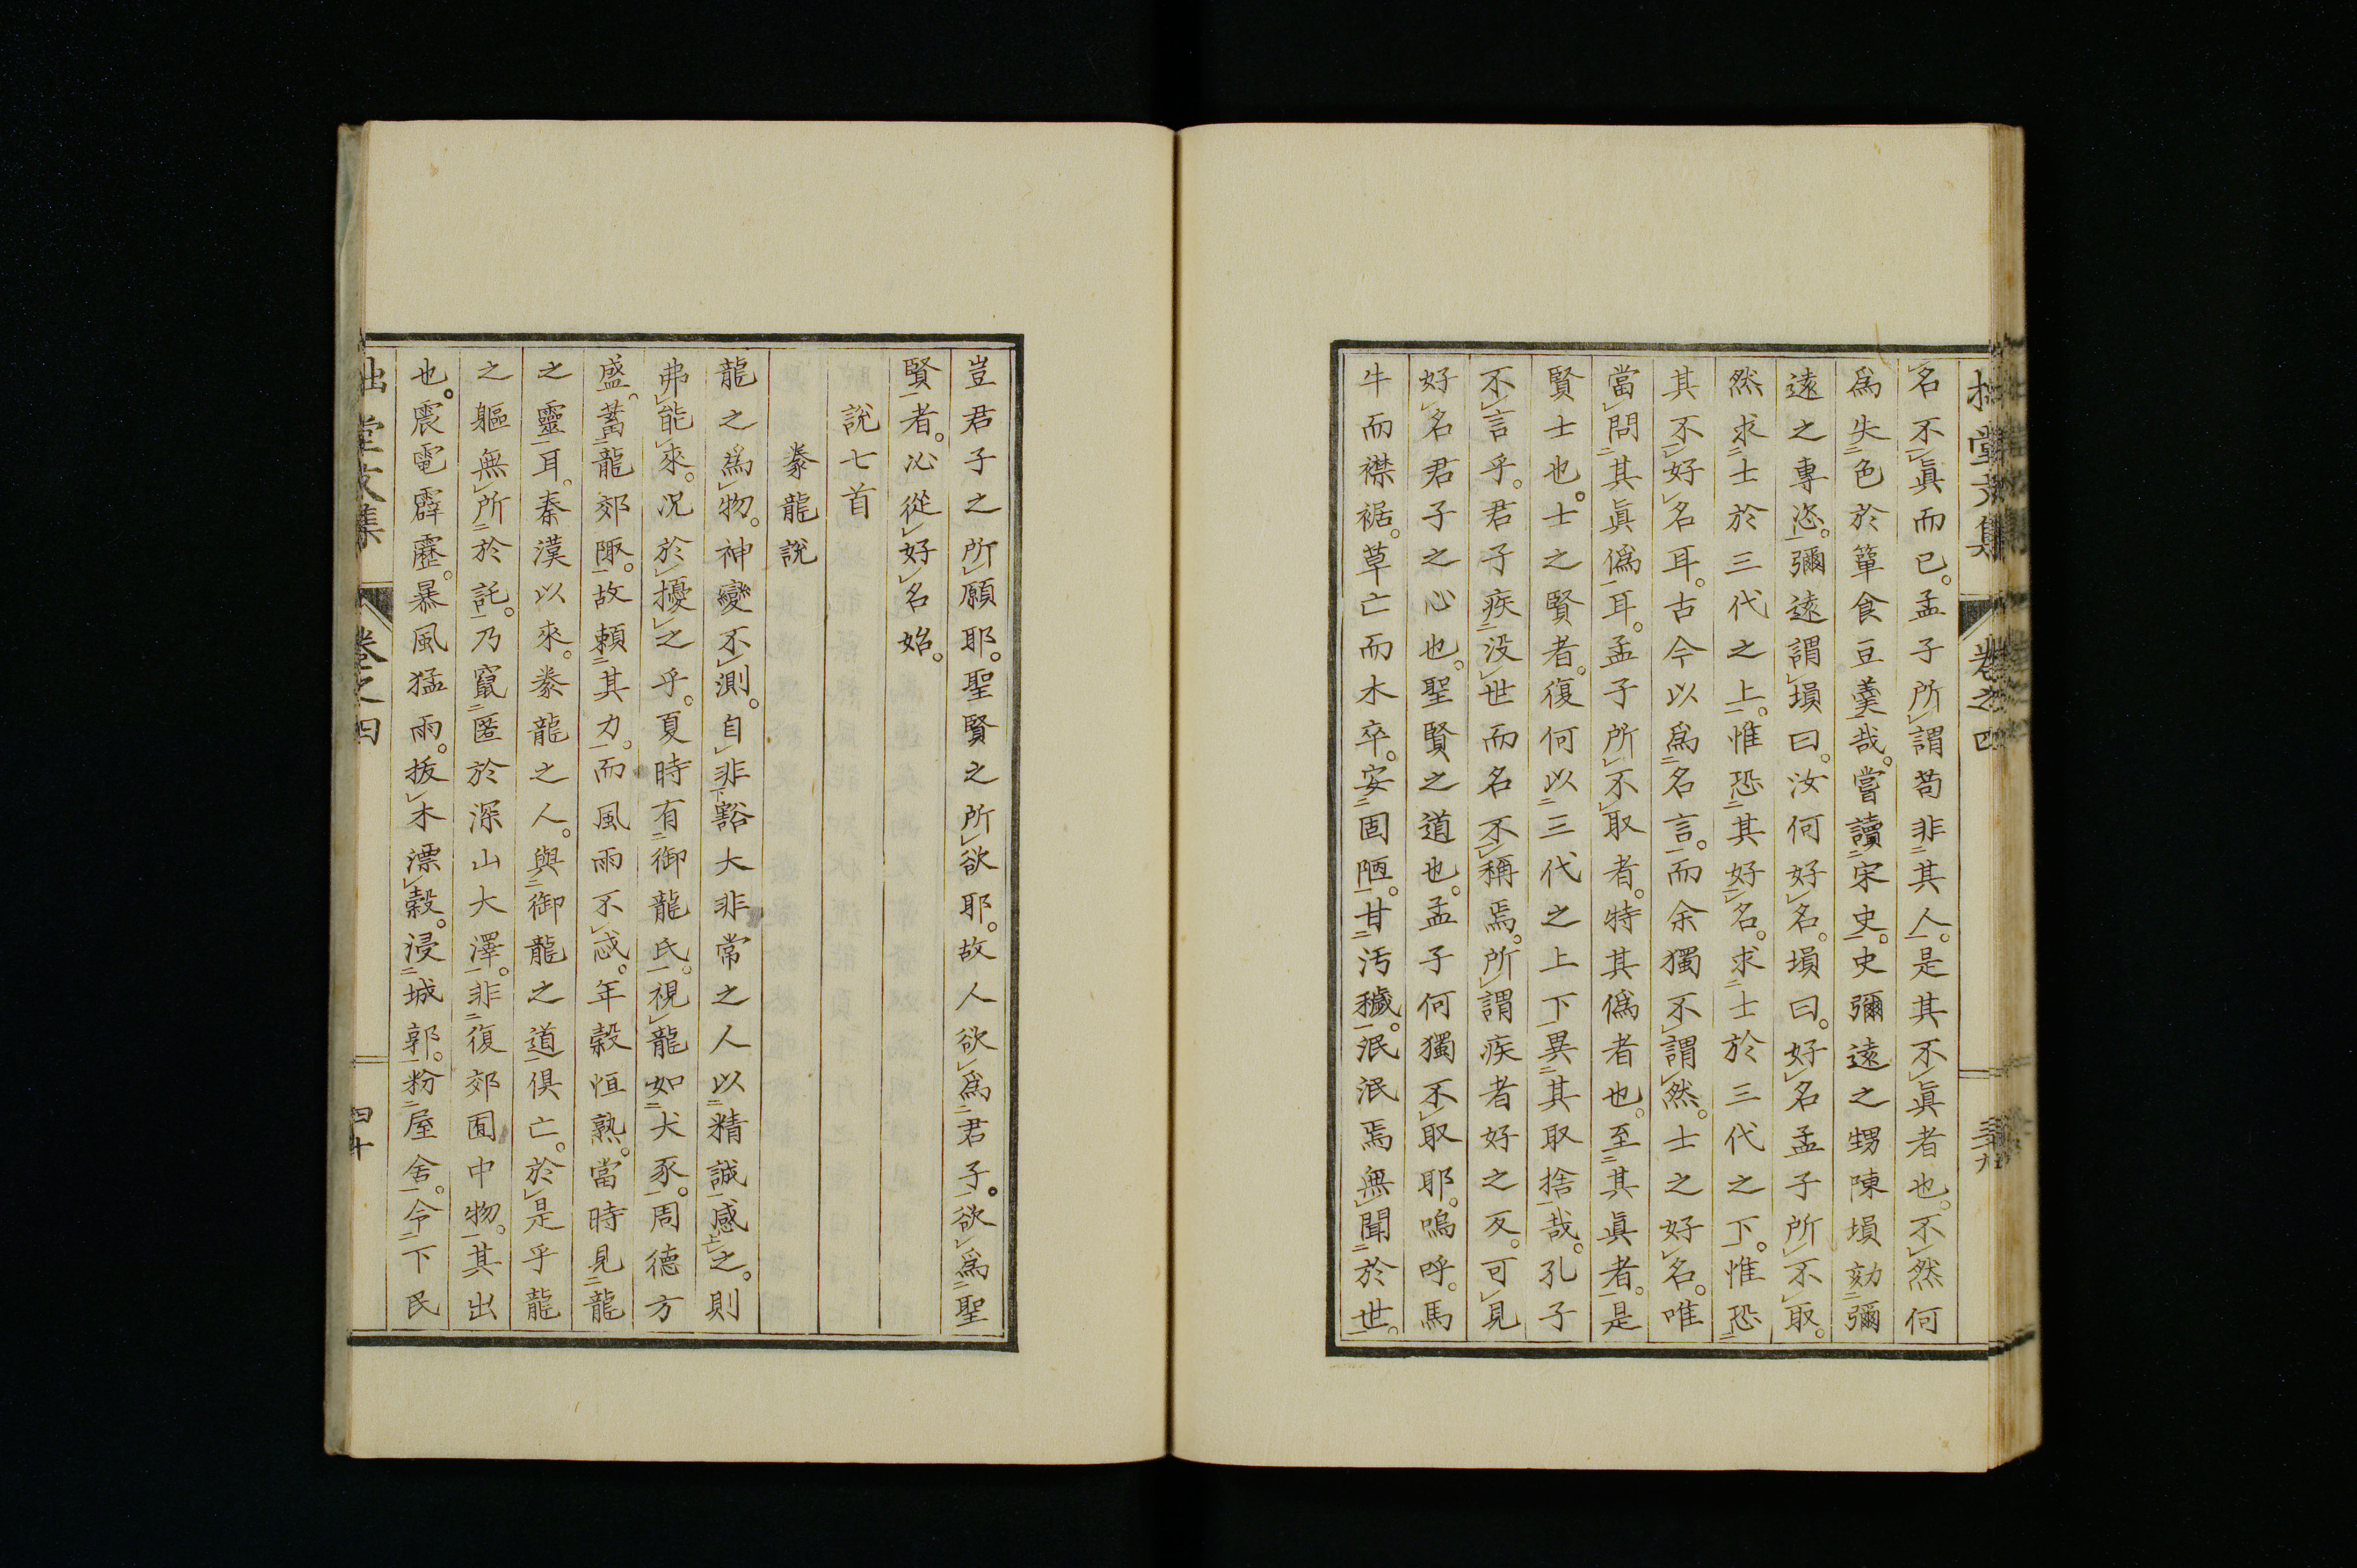 拙堂文集 卷之四 三十九
名不眞而已。孟子所謂苟非其人。是其不眞者也。不然何
爲失色於簞食豆羹哉。嘗讀宋史。史彌遠之甥陳塤効彌
遠之專恣。彌遠謂塤曰。汝何好名。塤曰。好名孟子所不取。
然求士於三代之上。惟恐其好名。求士於三代之下。惟恐
其不好名耳。古今以爲名言。而余獨不謂然。士之好名。唯
當問其眞僞耳。孟子所不取者。特其僞者也。至其眞者。是
賢士也。士之賢者。復何以三代之上下異其取捨哉。孔子
不言乎。君子疾没世而名不稱焉。所謂疾者好之反。可見
好名君子之心也。聖賢之道也。孟子何獨不取耶。嗚呼。馬
牛而襟裾。草亡而木卒。安固陋。甘汚穢。泯泯焉無聞於世。
豈君子之所願耶。聖賢之所欲耶。故人欲爲君子。欲爲聖
賢者。必從好名始。
說七首
豢龍說
龍之爲物。神變不測。自非豁大非常之人以精誠感之。則
弗能來。况於擾之乎。夏時有御龍氏。視龍如犬豕。周德方
盛。蓄龍郊陬。故頼其力。而風雨不忒。年穀恒熟。當時見龍
之靈耳。秦漢以來。豢龍之人。與御龍之道俱亡。於是乎龍
之軀無所於託。乃竄匿於深山大澤。非復郊囿中物。其出
也。震電霹靂。暴風猛雨。拔木漂穀。浸城郭。粉屋舍。令下民
拙堂文集 卷之四 四十